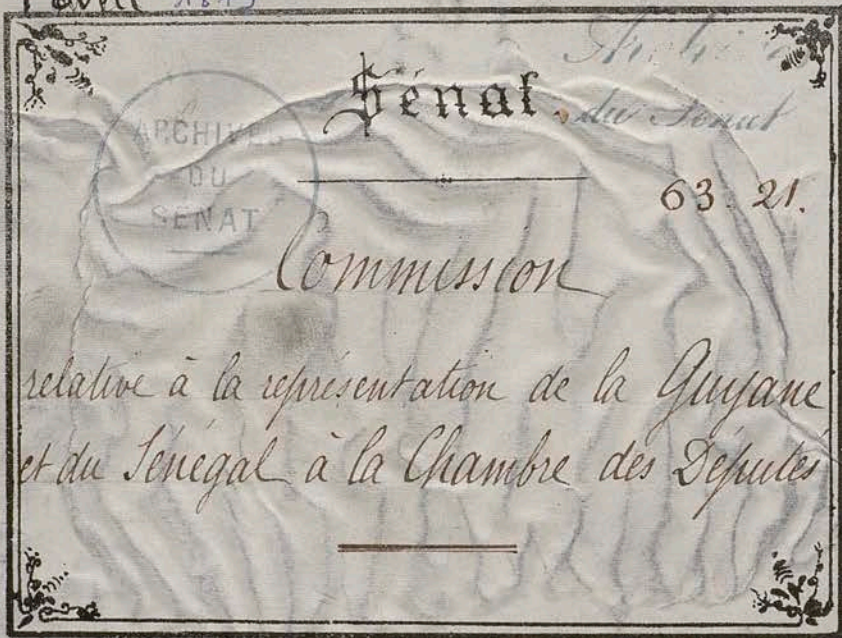 Sénat.
du Sénat
ARCHIVES
DU
SENAT
63. 21.
Commission
relative à la représentation de la Guyane
et du Sénégal à la Chambre des Députés